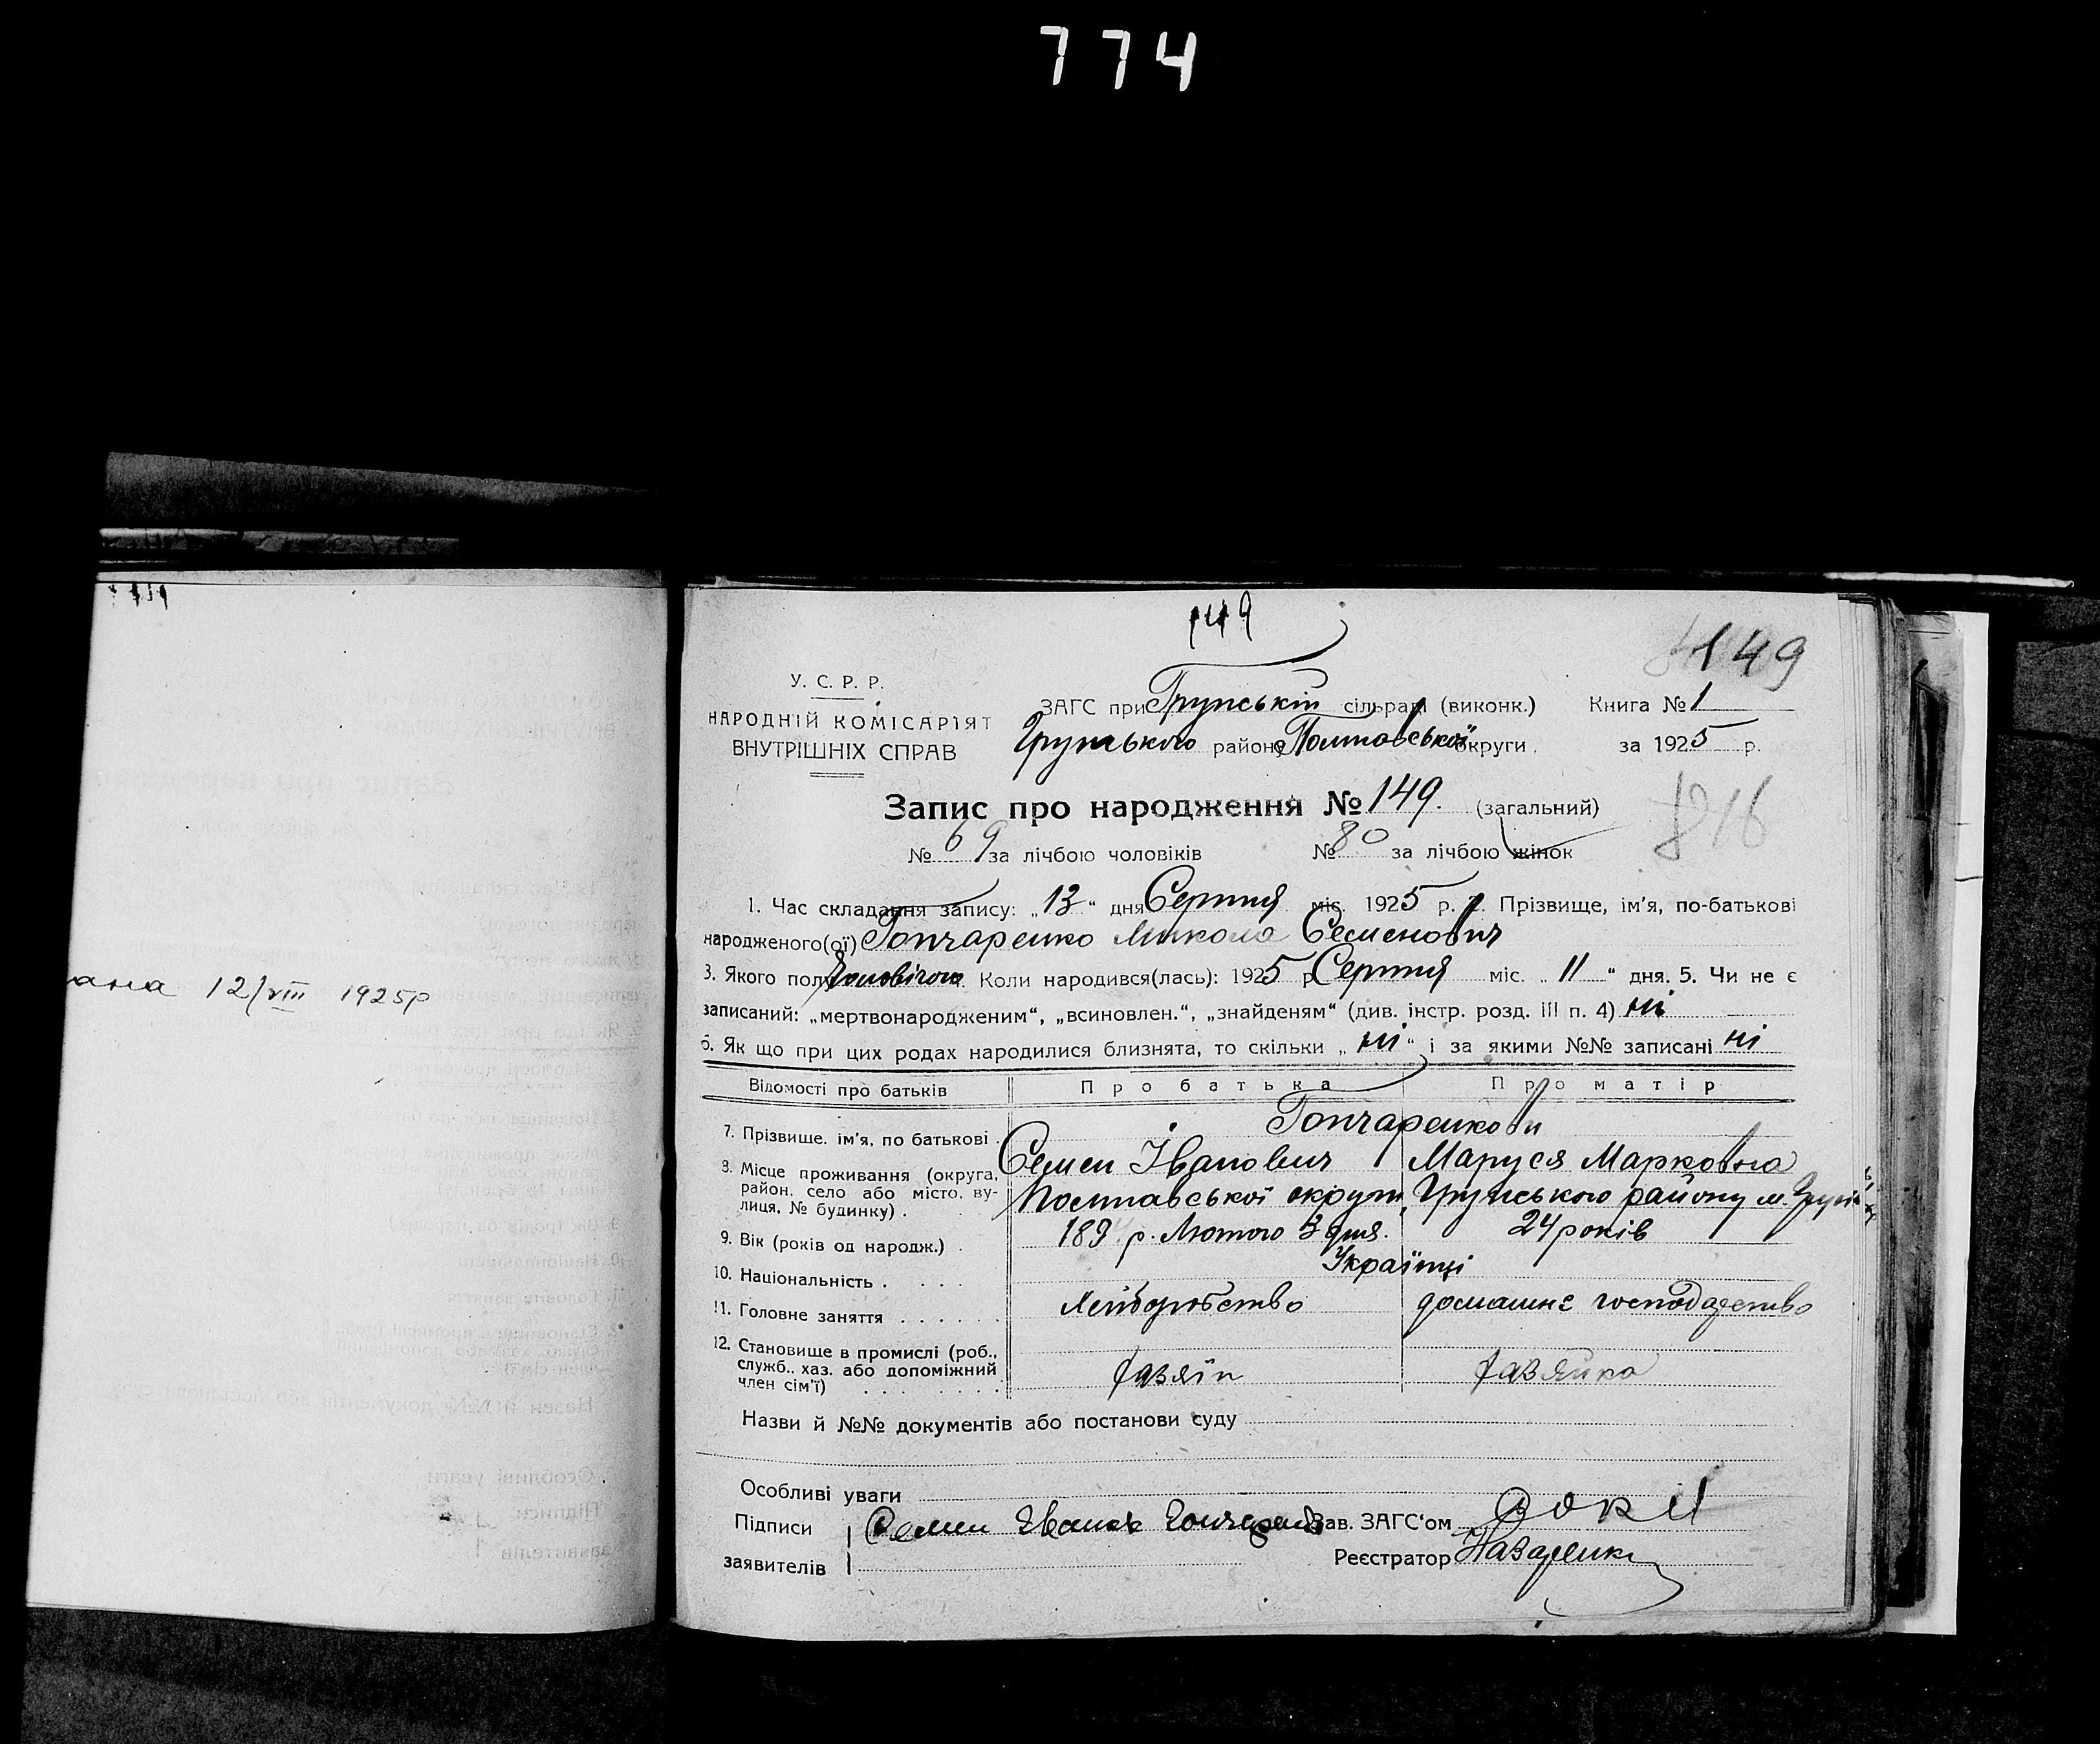 774
149
149
У. С. Р. Р.
НАРОДНІЙ КОМІСАРІЯТ
ВНУТРІШНІХ СПРАВ
ЗАГС при Грунській сільраді (виконк.) Книга № 1
Грунського району Полтавської округи, за 1925 р.
Запис про народження № 149. (загальний)
№ 69 за лічбою чоловіків № 80 за лічбою жінок
1. Час складання запису: „13“ дня Серпня міс. 1925 р. 2. Прізвище, ім'я, по-батькові
народженого(ої) Гончаренко Микола Семенович
3. Якого полу Чоловічого Коли народився(лась): 1925 р. Серпня міс. „11“ дня. 5. Чи не є
записаний: „мертвонародженим“, „всиновлен.“, „знайденям“ (див. інстр. розд. III п. 4) ні
6. Як що при цих родах народилися близнята, то скільки „ні“ і за якими №№ записані ні
Відомості про батьків Про батька Про матір
7. Прізвище. ім'я, по батькові . Гончаренкови
Семен Іванович Маруся Марковна
8. Місце проживання (округа, район, село або місто, вулиця, № будинку) . Полтавської округи, Грунського району м. Грунь
9. Вік (років од народж.) . 189 р. Лютого 3 дня. 24 років
10. Національність . . . . Українці
11. Головне заняття . . . . . . Хліборобство домашнє господарство
12. Становище в промислі (роб., служб., хаз. або допоміжний член сім'ї) . . . . . . . . Хазяїн Хазяйка
Назви й №№ документів або постанови суду
Особливі уваги
Підписи Семен Іванов Гончаренко Зав. ЗАГС'ом
заявителів Реєстратор Назаренко
ана 12/VIII 1925р